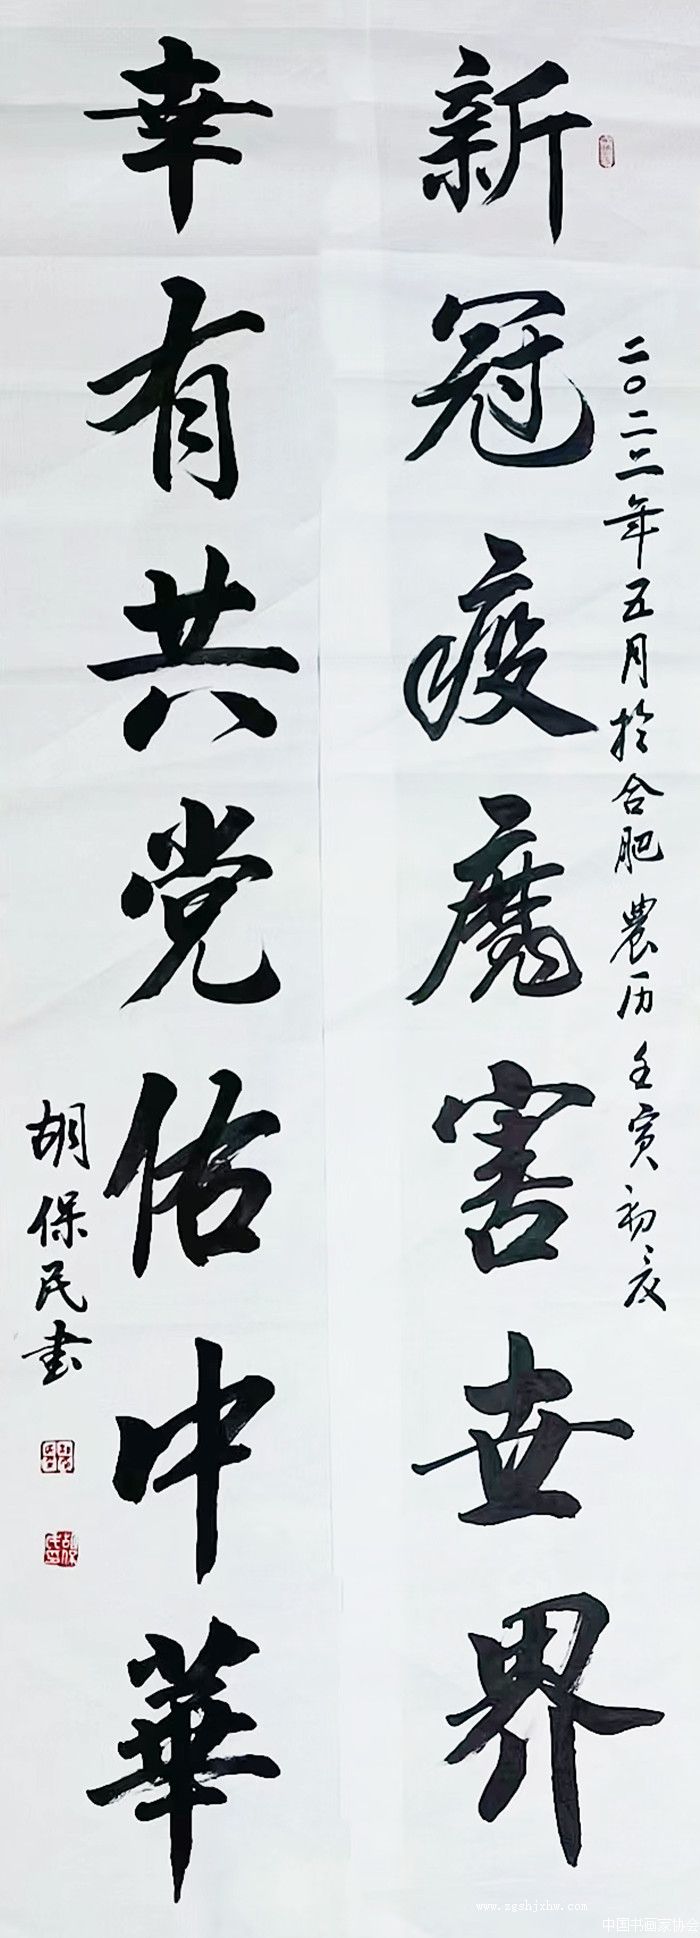 二〇二二年五月於合肥 農历壬寅初夏
新冠疫魔害世界
幸有共党佑中華
胡保民書
www.zgshjxhw.com
中国书画家协会